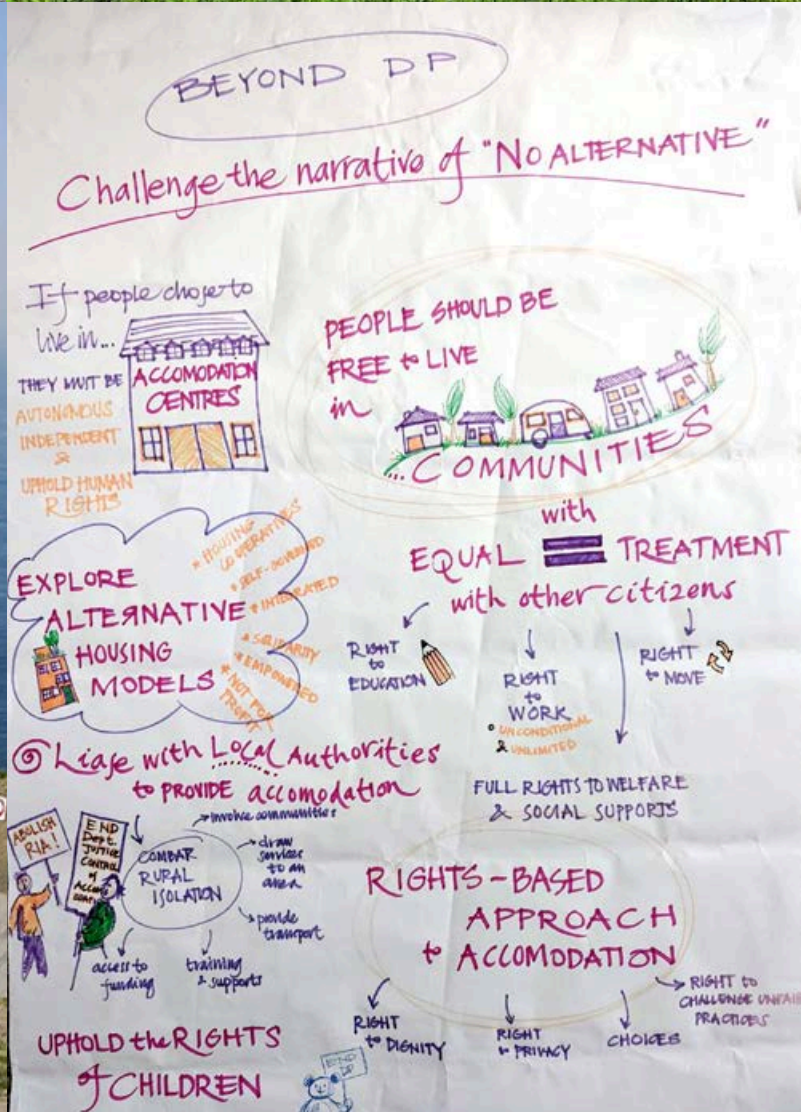 BEYOND DP
Challenge the narrative of "NO ALTERNATIVE"
If people chose to
live in...
ACCOMODATION
CENTRES
THEY MUST BE
AUTONOMOUS
INDEPENDENT
&
UPHOLD HUMAN
RIGHTS
PEOPLE SHOULD BE
FREE to LIVE
in
...COMMUNITIES
with
EQUAL = TREATMENT
with other citizens
RIGHT
to
EDUCATION
RIGHT
to
WORK
UNCONDITIONAL
& UNLIMITED
RIGHT
to MOVE
FULL RIGHTS TO WELFARE
& SOCIAL SUPPORTS
EXPLORE
ALTERNATIVE
HOUSING
MODELS
* HOUSING
CO OPERATIVES
* SELF-GOVERNED
* INTEGRATED
* SOLIDARITY
* EMPOWERED
* NOT FOR
PROFIT
Liase with Local Authorities
to PROVIDE accomodation
ABOLISH
RIA!
END
Dept.
JUSTICE
CONTROL
of
COMBAR
RURAL
ISOLATION
involve communities
draw
services
to an
area
provide
transport
training
& supports
access to
funding
RIGHTS-BASED
APPROACH
to ACCOMODATION
RIGHT
to DIGNITY
RIGHT
to PRIVACY
CHOICES
RIGHT to
CHALLENGE UNFAIR
PRACTICES
UPHOLD the RIGHTS
of CHILDREN
END
DP